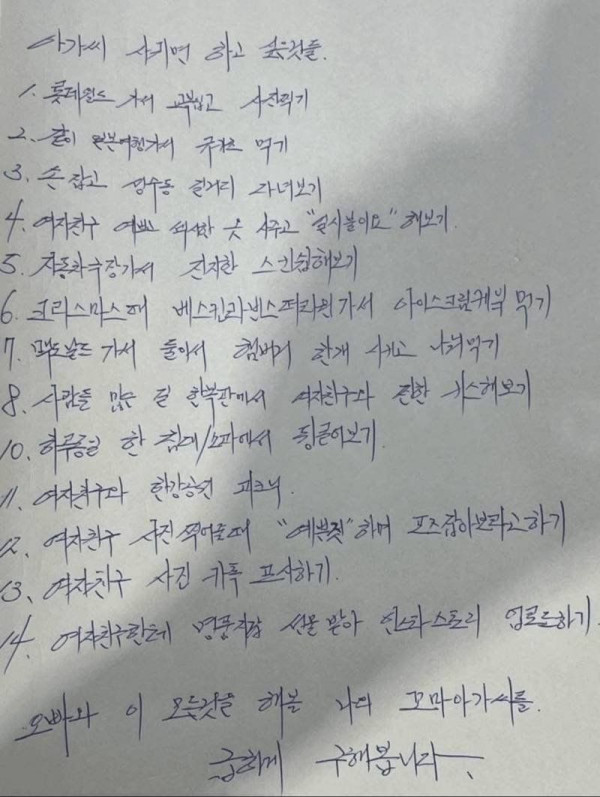 아가씨 사귀면 하고 싶은것들.
1. 롯데월드 가서 교복입고 사진찍기
2. 같이 일본여행가서 규카츠 먹기
3. 손 잡고 성수동 길거리 다녀보기
4. 여자친구 예쁘고 섹시한 옷 사주고 "일시불이요" 해보기
5. 자동차극장가서 진지한 스킨쉽해보기
6. 크리스마스때 베스킨라빈스떠리원가서 아이스크림케익 먹기
7. 맥도날드 가서 둘이서 햄버거 한개 시키고 나눠먹기
8. 사람들 많은 길 한복판에서 여자친구와 진한 키스해보기
10. 하루종일 한 침대/쇼파에서 뒹굴어보기
11. 여자친구와 한강공원 피크닉.
12. 여자친구 사진 찍어줄때 "예쁜짓" 하며 포즈잡아보라고하기
13. 여자친구 사진 카톡 프사하기.
14. 여자친구한테 명품지갑 선물 받아 인스타스토리 업로드하기.
오빠와 이 모든것을 해볼 나의 꼬마아가씨를.
급하게 구해봅니다